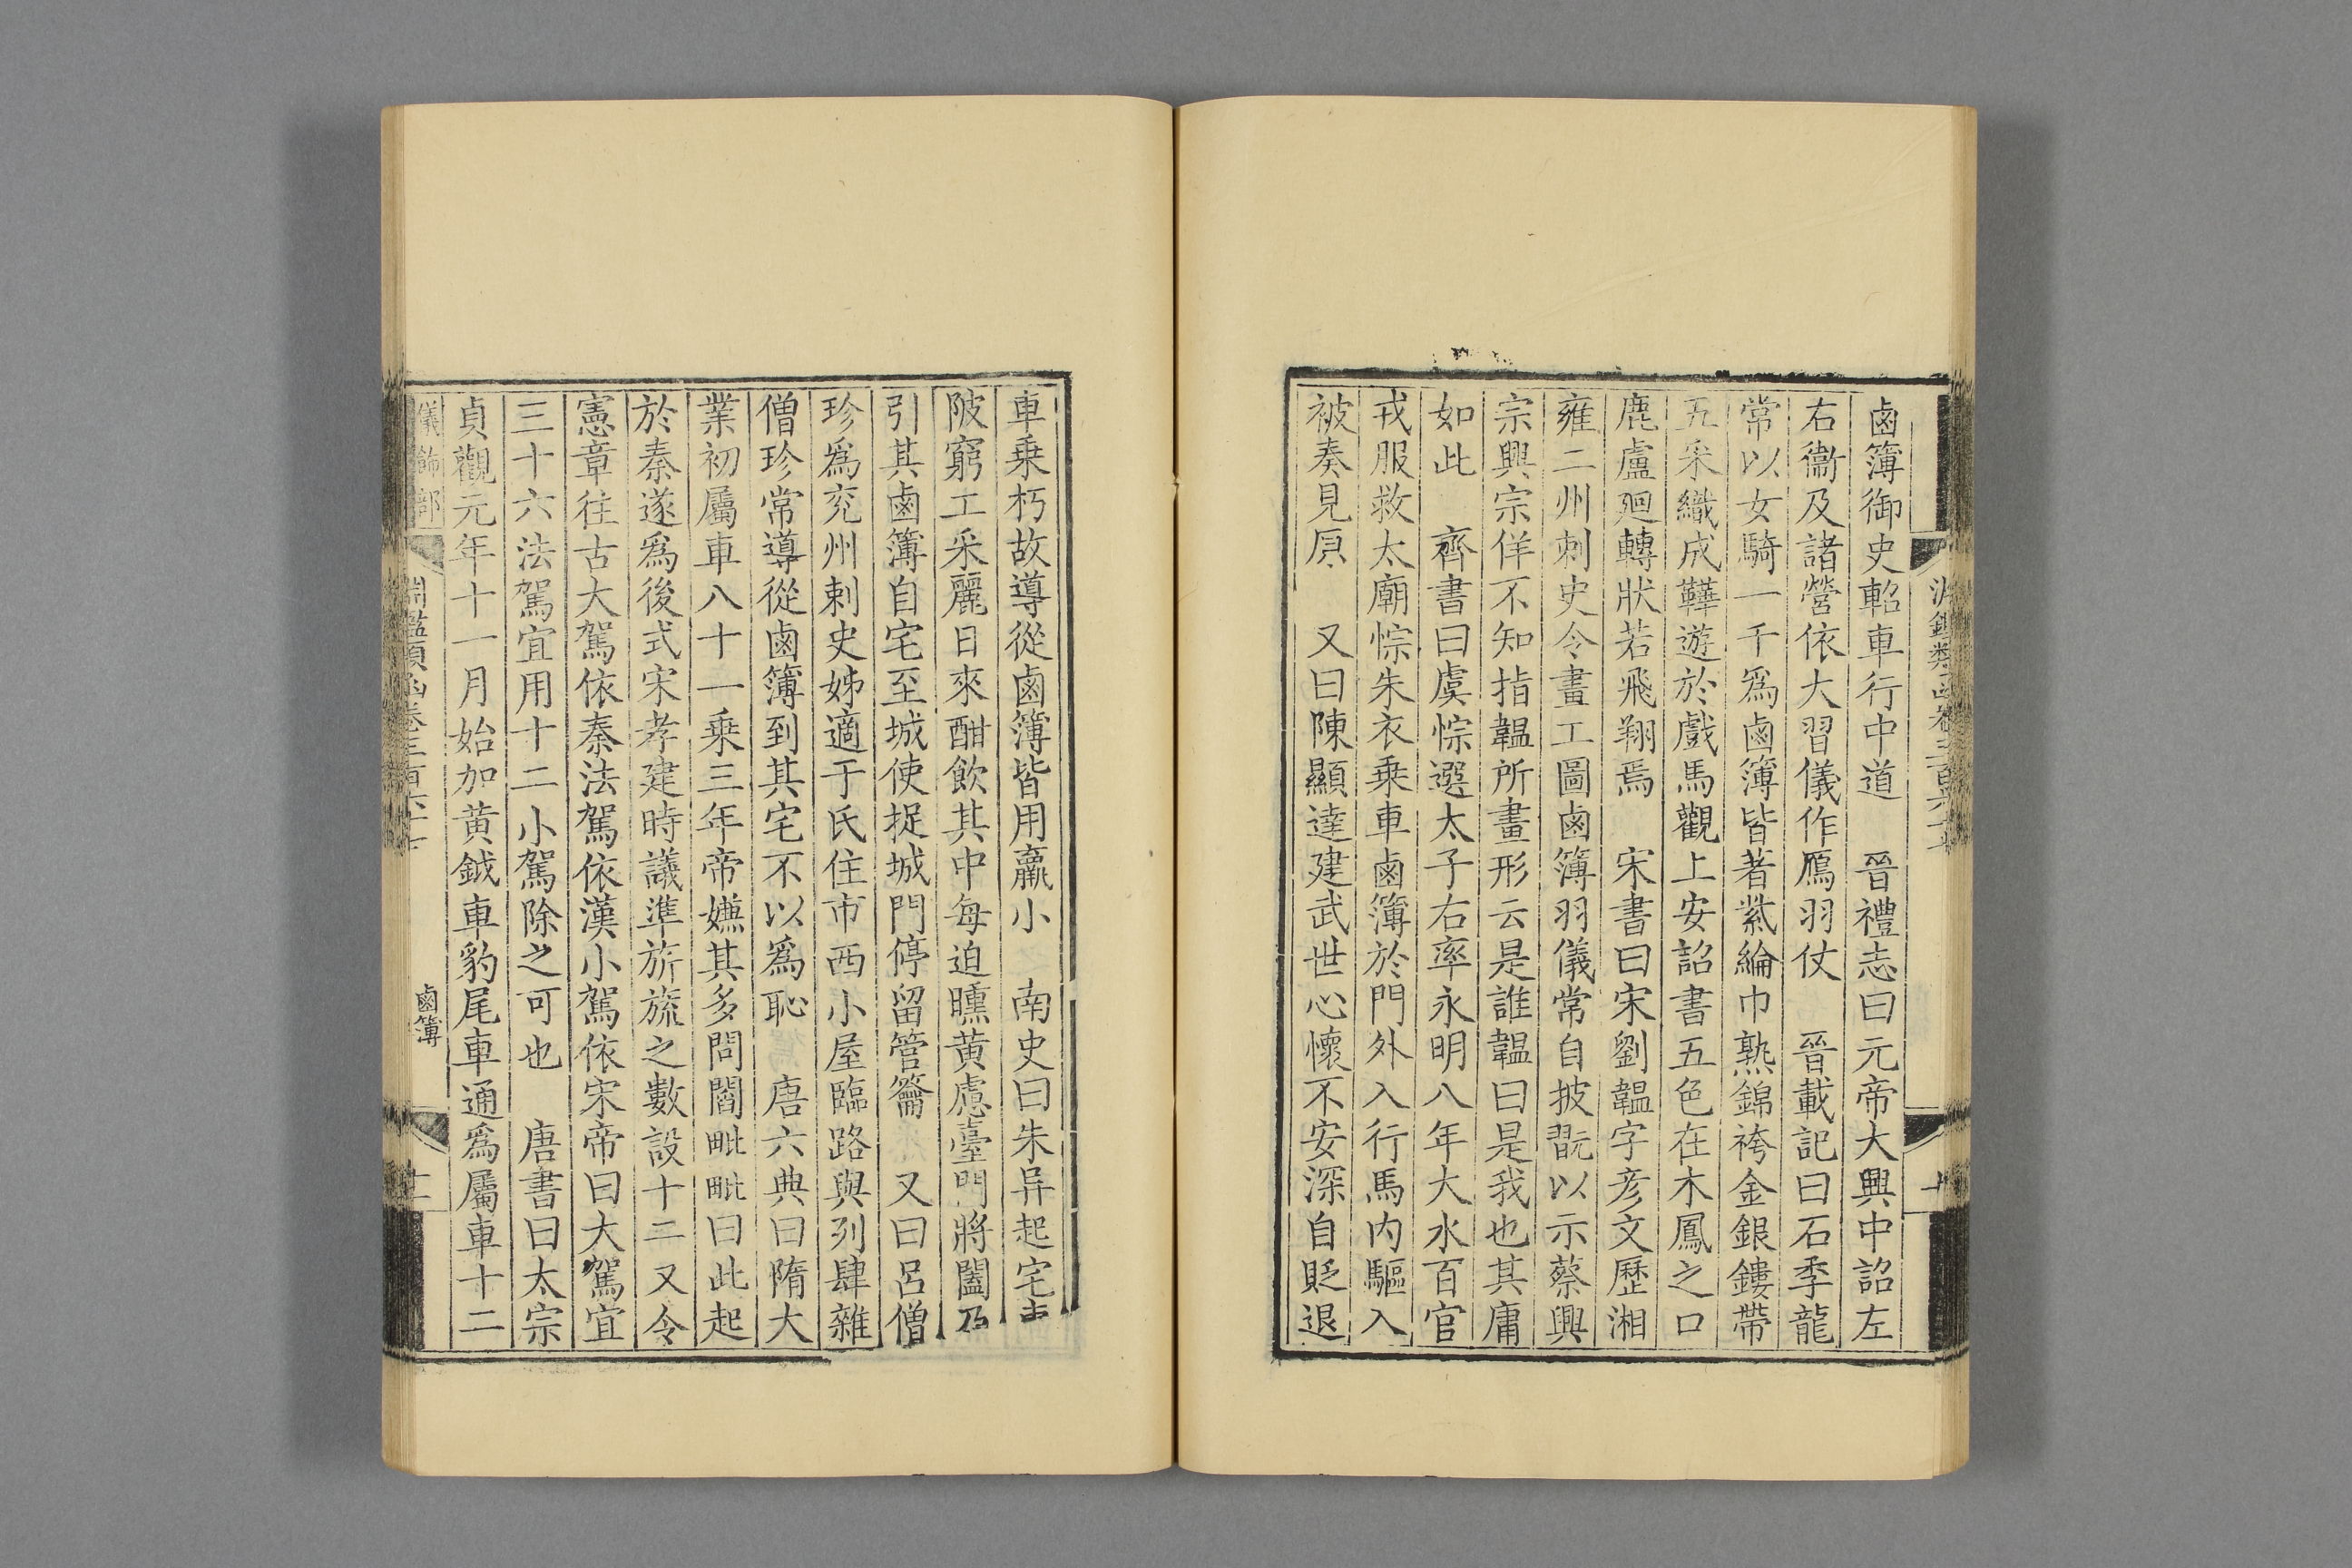 鹵簿御史軺車行中道　晉禮志曰元帝大興中詔左
右衞及諸營依大習儀作鴈羽仗　晉載記曰石季龍
常以女騎一千爲鹵簿皆著紫綸巾熟錦袴金銀鏤帶
五采織成鞾遊於戲馬觀上安詔書五色在木鳳之口
鹿盧迴轉狀若飛翔焉　宋書曰宋劉韞字彥文歷湘
雍二州刺史令畫工圖鹵簿羽儀常自披翫以示蔡興
宗興宗佯不知指韞所畫形云是誰韞曰是我也其庸
如此　齊書曰虞悰選太子右率永明八年大水百官
戎服救太廟悰朱衣乘車鹵簿於門外入行馬內驅入
被奏見原　又曰陳顯達建武世心懷不安深自貶退
車乘朽故導從鹵簿皆用羸小　南史曰朱异起宅東
陂窮工采麗日來酣飲其中每迫曛黃慮臺門將闔乃
引其鹵簿自宅至城使捉城門停留管籥　又曰呂僧
珍爲兗州刺史姊適于氏住市西小屋臨路與列肆雜
僧珍常導從鹵簿到其宅不以爲恥　唐六典曰隋大
業初屬車八十一乘三年帝嫌其多問閻毗毗曰此起
於秦遂爲後式宋孝建時議準旂旒之數設十二又令
憲章往古大駕依秦法駕依漢小駕依宋帝曰大駕宜
三十六法駕宜用十二小駕除之可也　唐書曰太宗
貞觀元年十一月始加黃鉞車豹尾車通爲屬車十二
儀飾部
淵鑑類函卷三百六十七
鹵簿
十二